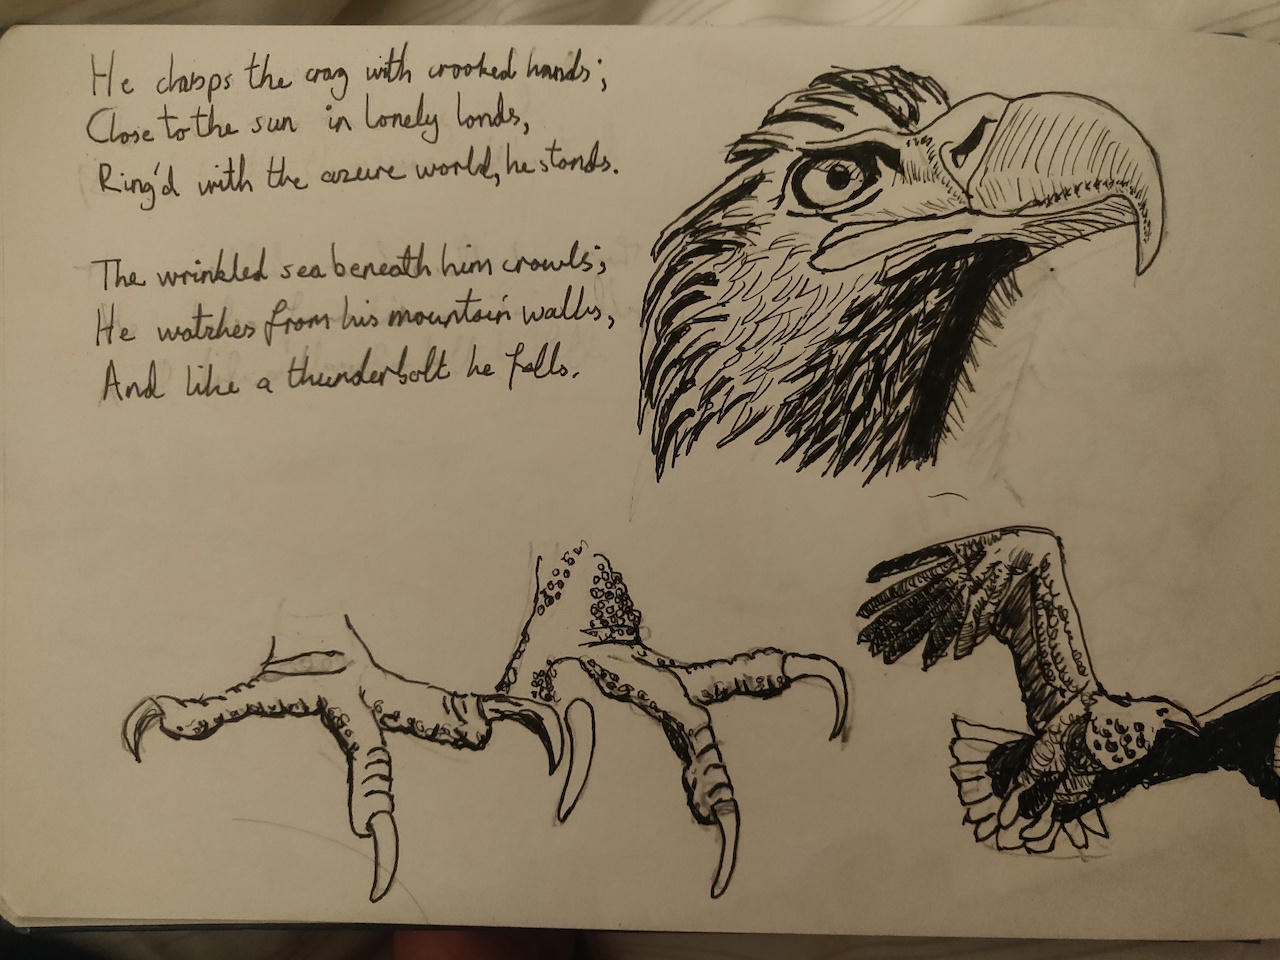 He clasps the crag with crooked hands;
Close to the sun in lonely lands,
Ring'd with the azure world, he stands.
The wrinkled sea beneath him crawls;
He watches from his mountain walls,
And like a thunderbolt he falls.